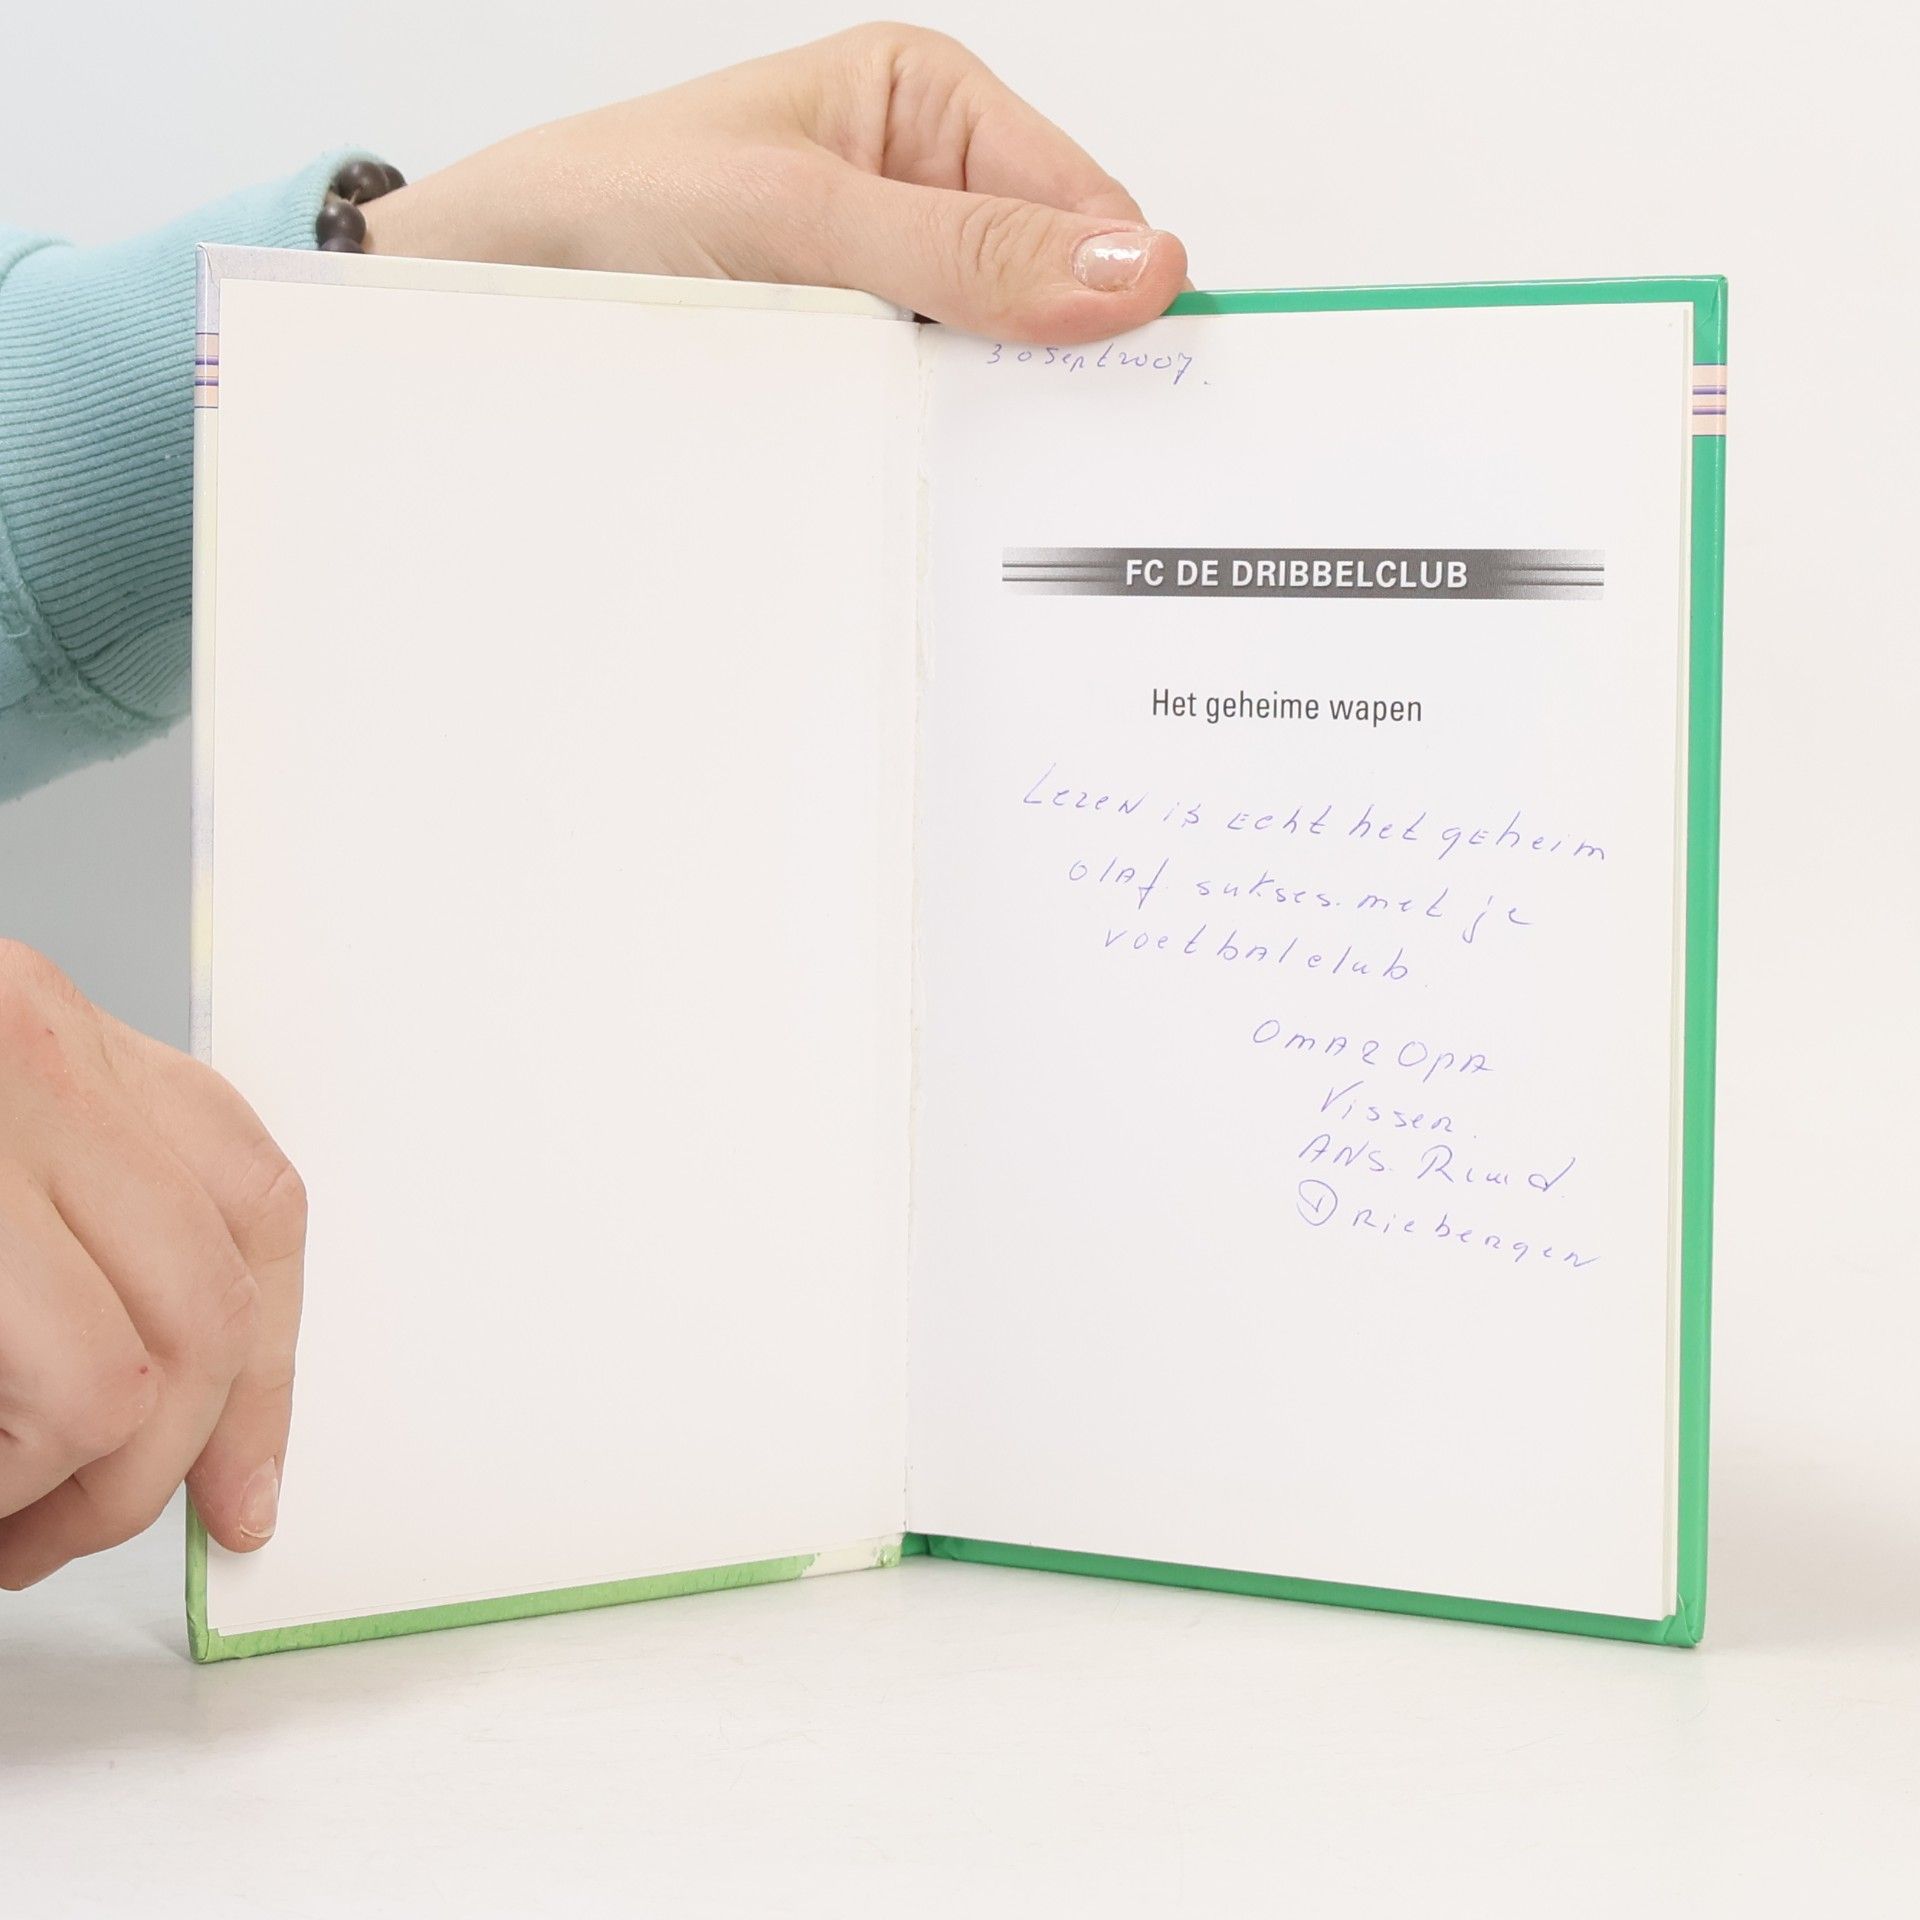 30 Sept 2007.
FC DE DRIBBELCLUB
Het geheime wapen
Lezen is Echt het geheim
Olaf. sukses. met je
voetbalclub.
Oma & Opa
Visser.
ANS.
Driebergen